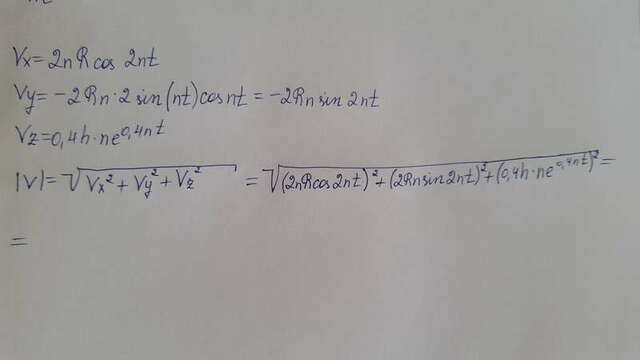 Vx = 2nRcos 2nt
Vy = -2Rn·2 sin(nt)cosnt = -2Rnsin 2nt
Vz = 0,4h·ne^0,4nt
|V| = √(Vx² + Vy² + Vz²) = √((2nRcos2nt)² + (2Rnsin2nt)² + (0,4h·ne^0,4nt)²) =
=